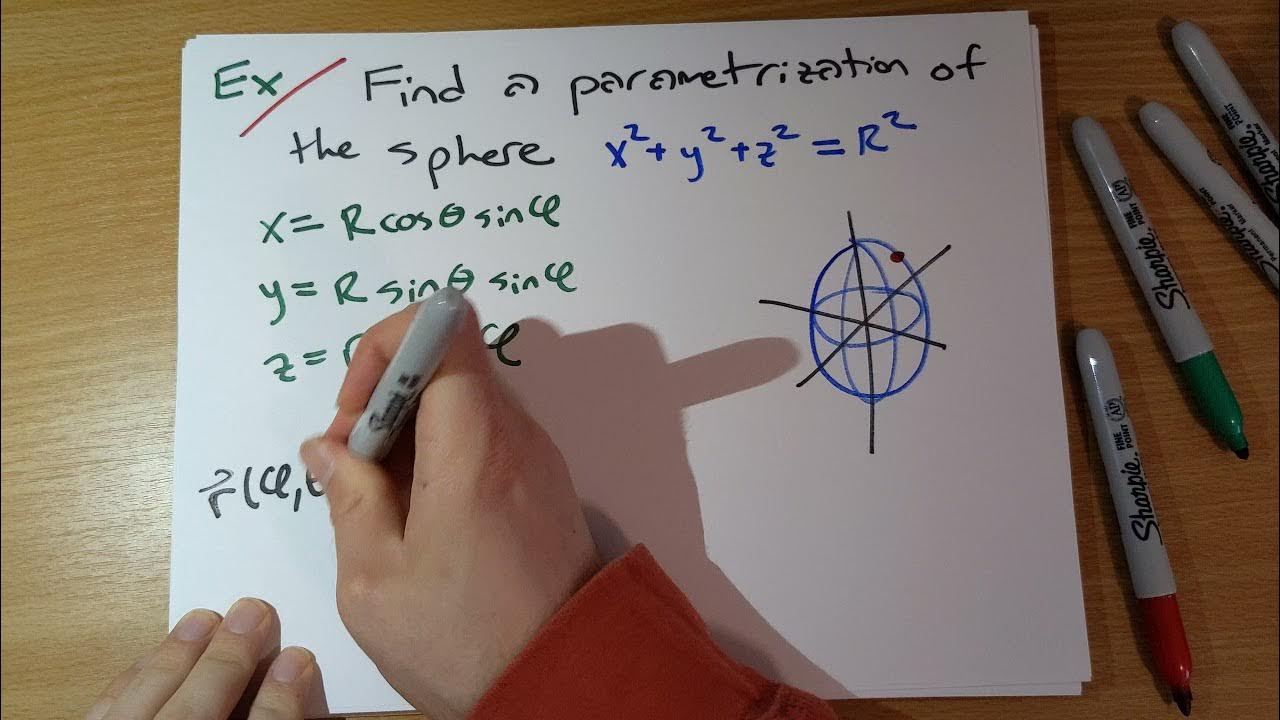 Ex Find a parametrization of
the sphere x² + y² + z² = R²
x = R cosθ sinφ
y = R sinθ sinφ
z = φ
r⃗(φ,
Sharpie. FINE POINT AP
Sharpie. FINE POINT
Sharpie. FINE POINT
Sharpie. FINE POINT AP